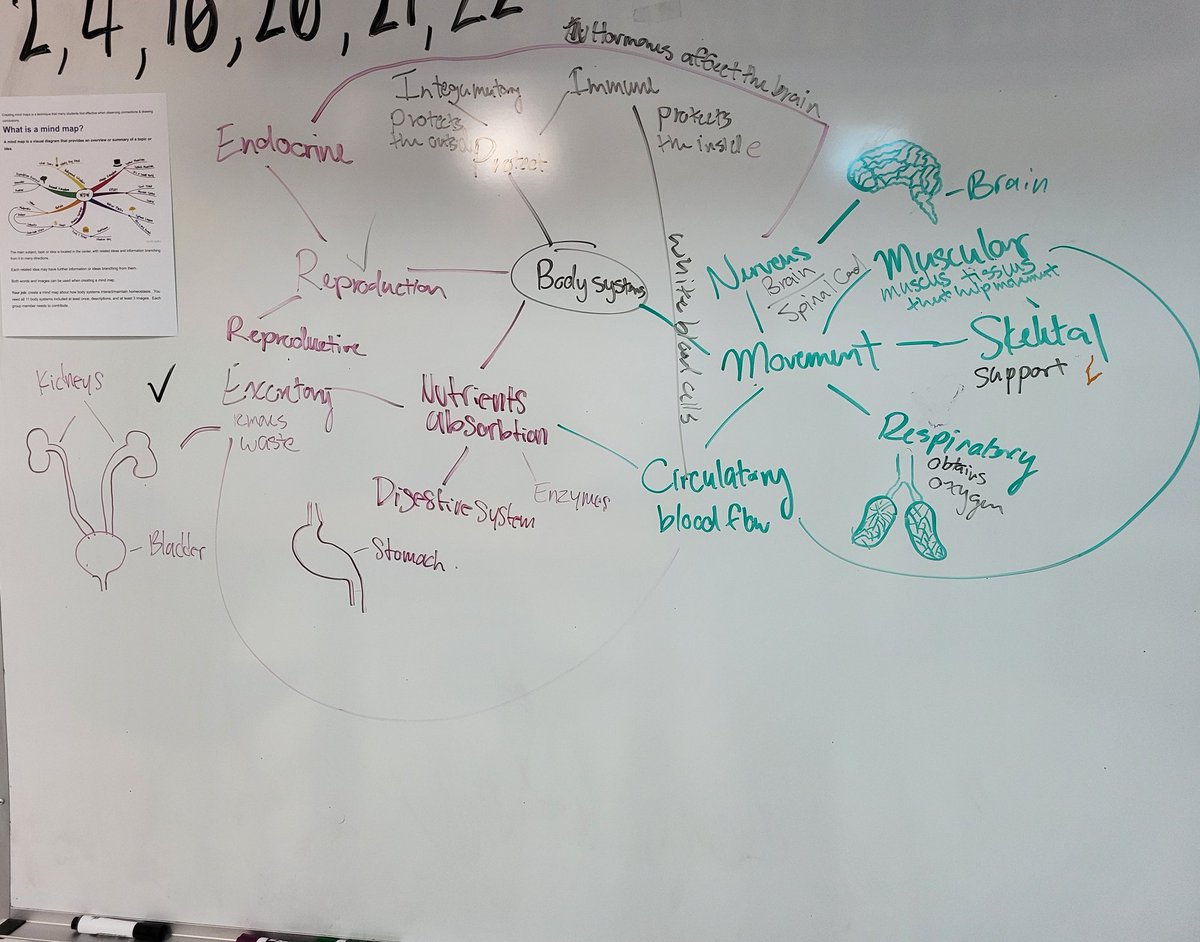 2, 4, 10, 20, 21, 22
Creating mind maps is a technique that many students find effective when observing connections & drawing
conclusions.
What is a mind map?
A mind map is a visual diagram that provides an overview or summary of a topic or
idea.
The main subject, topic or idea is located in the center, with related ideas and information branching
from it in many directions.
Each related idea may have further information or ideas branching from them.
Both words and images can be used when creating a mind map.
Your job: create a mind map about how body systems interact/maintain homeostasis. You
need all 11 body systems included at least once, descriptions, and at least 3 images. Each
group member needs to contribute.
Hormones affect the brain
Integumentary
protects
the outside
Immune
protects
the inside
Protect
Endocrine
Brain
Reproduction
Body systems
white blood cells
Nurvous
Brain
Spinal Cord
Muscular
muscus tissus
that help movement
Reproductive
Movement
Skeletal
support
Kidneys
Excrtory
waste
Nutrients
absorbtion
Respiratory
obtains
oxygen
Digestive System
Enzymes
Circulatory
blood flow
Bladder
Stomach